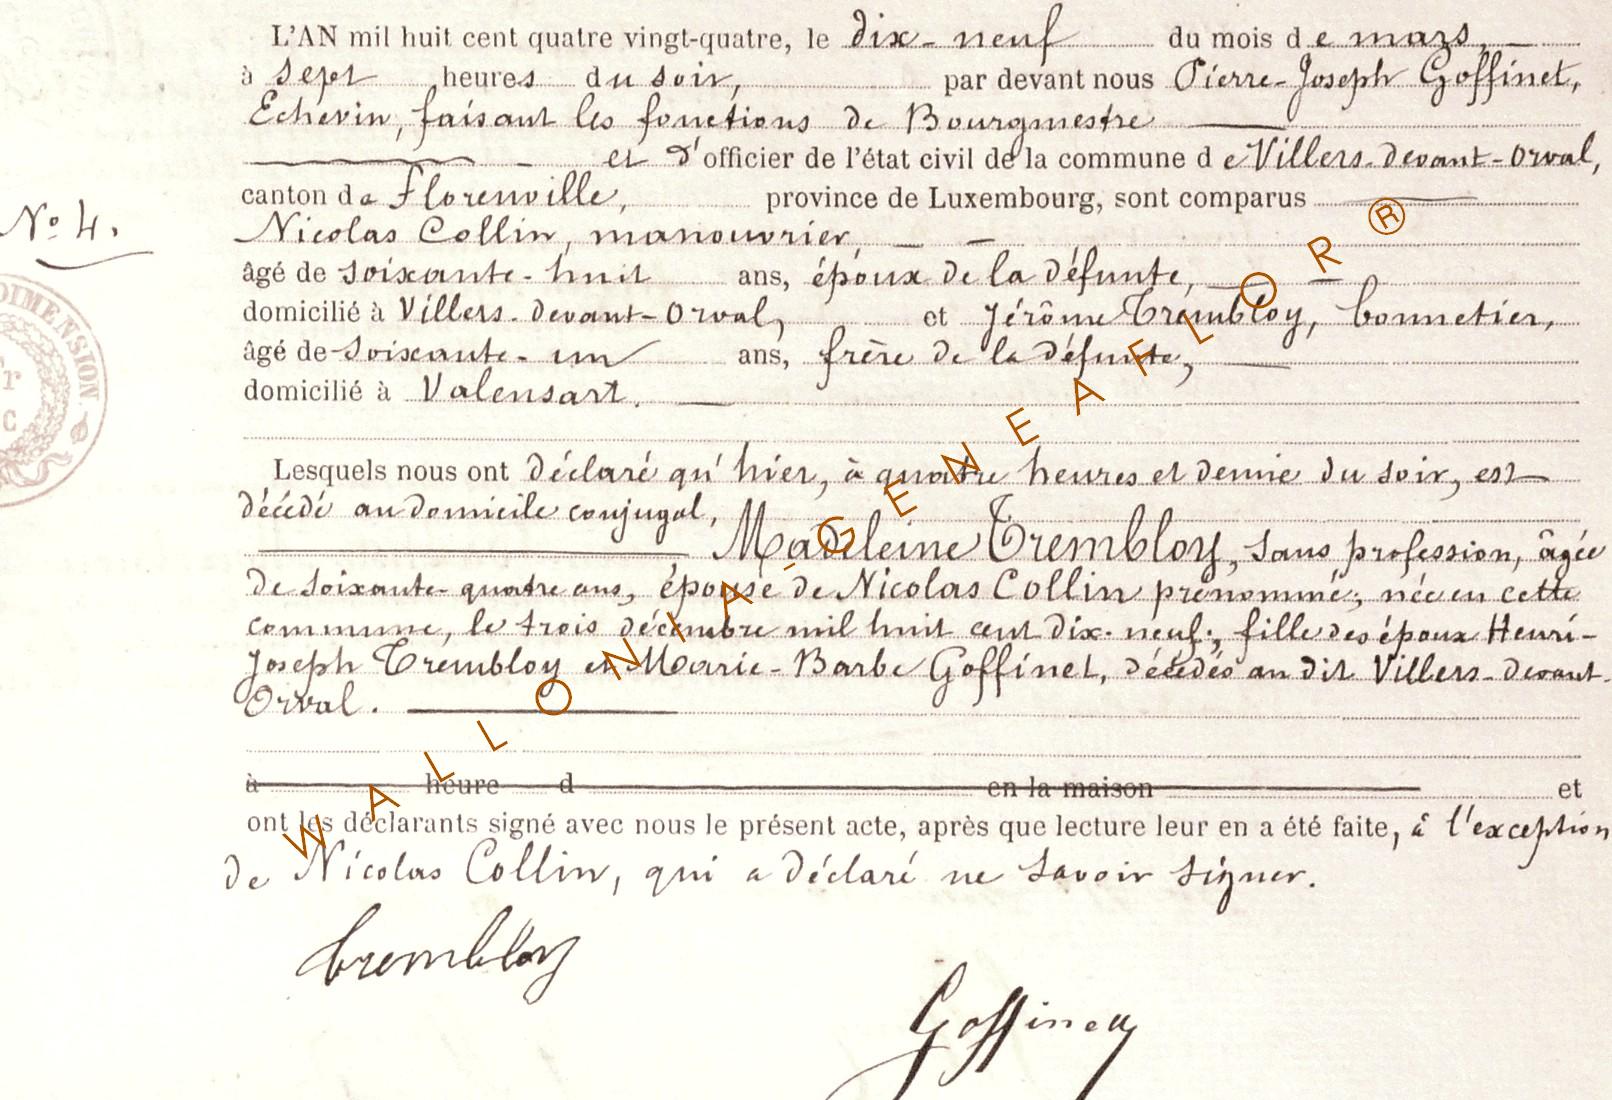 L'AN mil huit cent quatre vingt-quatre, le dix-neuf du mois de mars,
à sept heures du soir, par devant nous Pierre-Joseph Goffinet,
Echevin, faisant les fonctions de Bourgmestre
et d'officier de l'état civil de la commune de Villers-devant-Orval,
canton de Florenville, province de Luxembourg, sont comparus
N° 4.
Nicolas Collin, manouvrier,
âgé de soixante-huit ans, époux de la défunte,
domicilié à Villers-devant-Orval, et Jérôme Trembloy, bonnetier,
âgé de soixante-un ans, frère de la défunte,
domicilié à Valensart.
DIMENSION.
Lesquels nous ont déclaré qu'hier, à quatre heures et demie du soir, est
décédé au domicile conjugal,
Madeleine Trembloy, sans profession, âgée
de soixante-quatre ans, épouse de Nicolas Collin prénommé; née en cette
commune, le trois décembre mil huit cent dix-neuf; fille des époux Henri-
Joseph Trembloy et Marie-Barbe Goffinet, décédés au dit Villers-devant-
Orval.
à heure d en la maison et
ont les déclarants signé avec nous le présent acte, après que lecture leur en a été faite, à l'exception
de Nicolas Collin, qui a déclaré ne savoir signer.
Trembloy
Goffinet
WALLONIA-GENEAFLOR ®